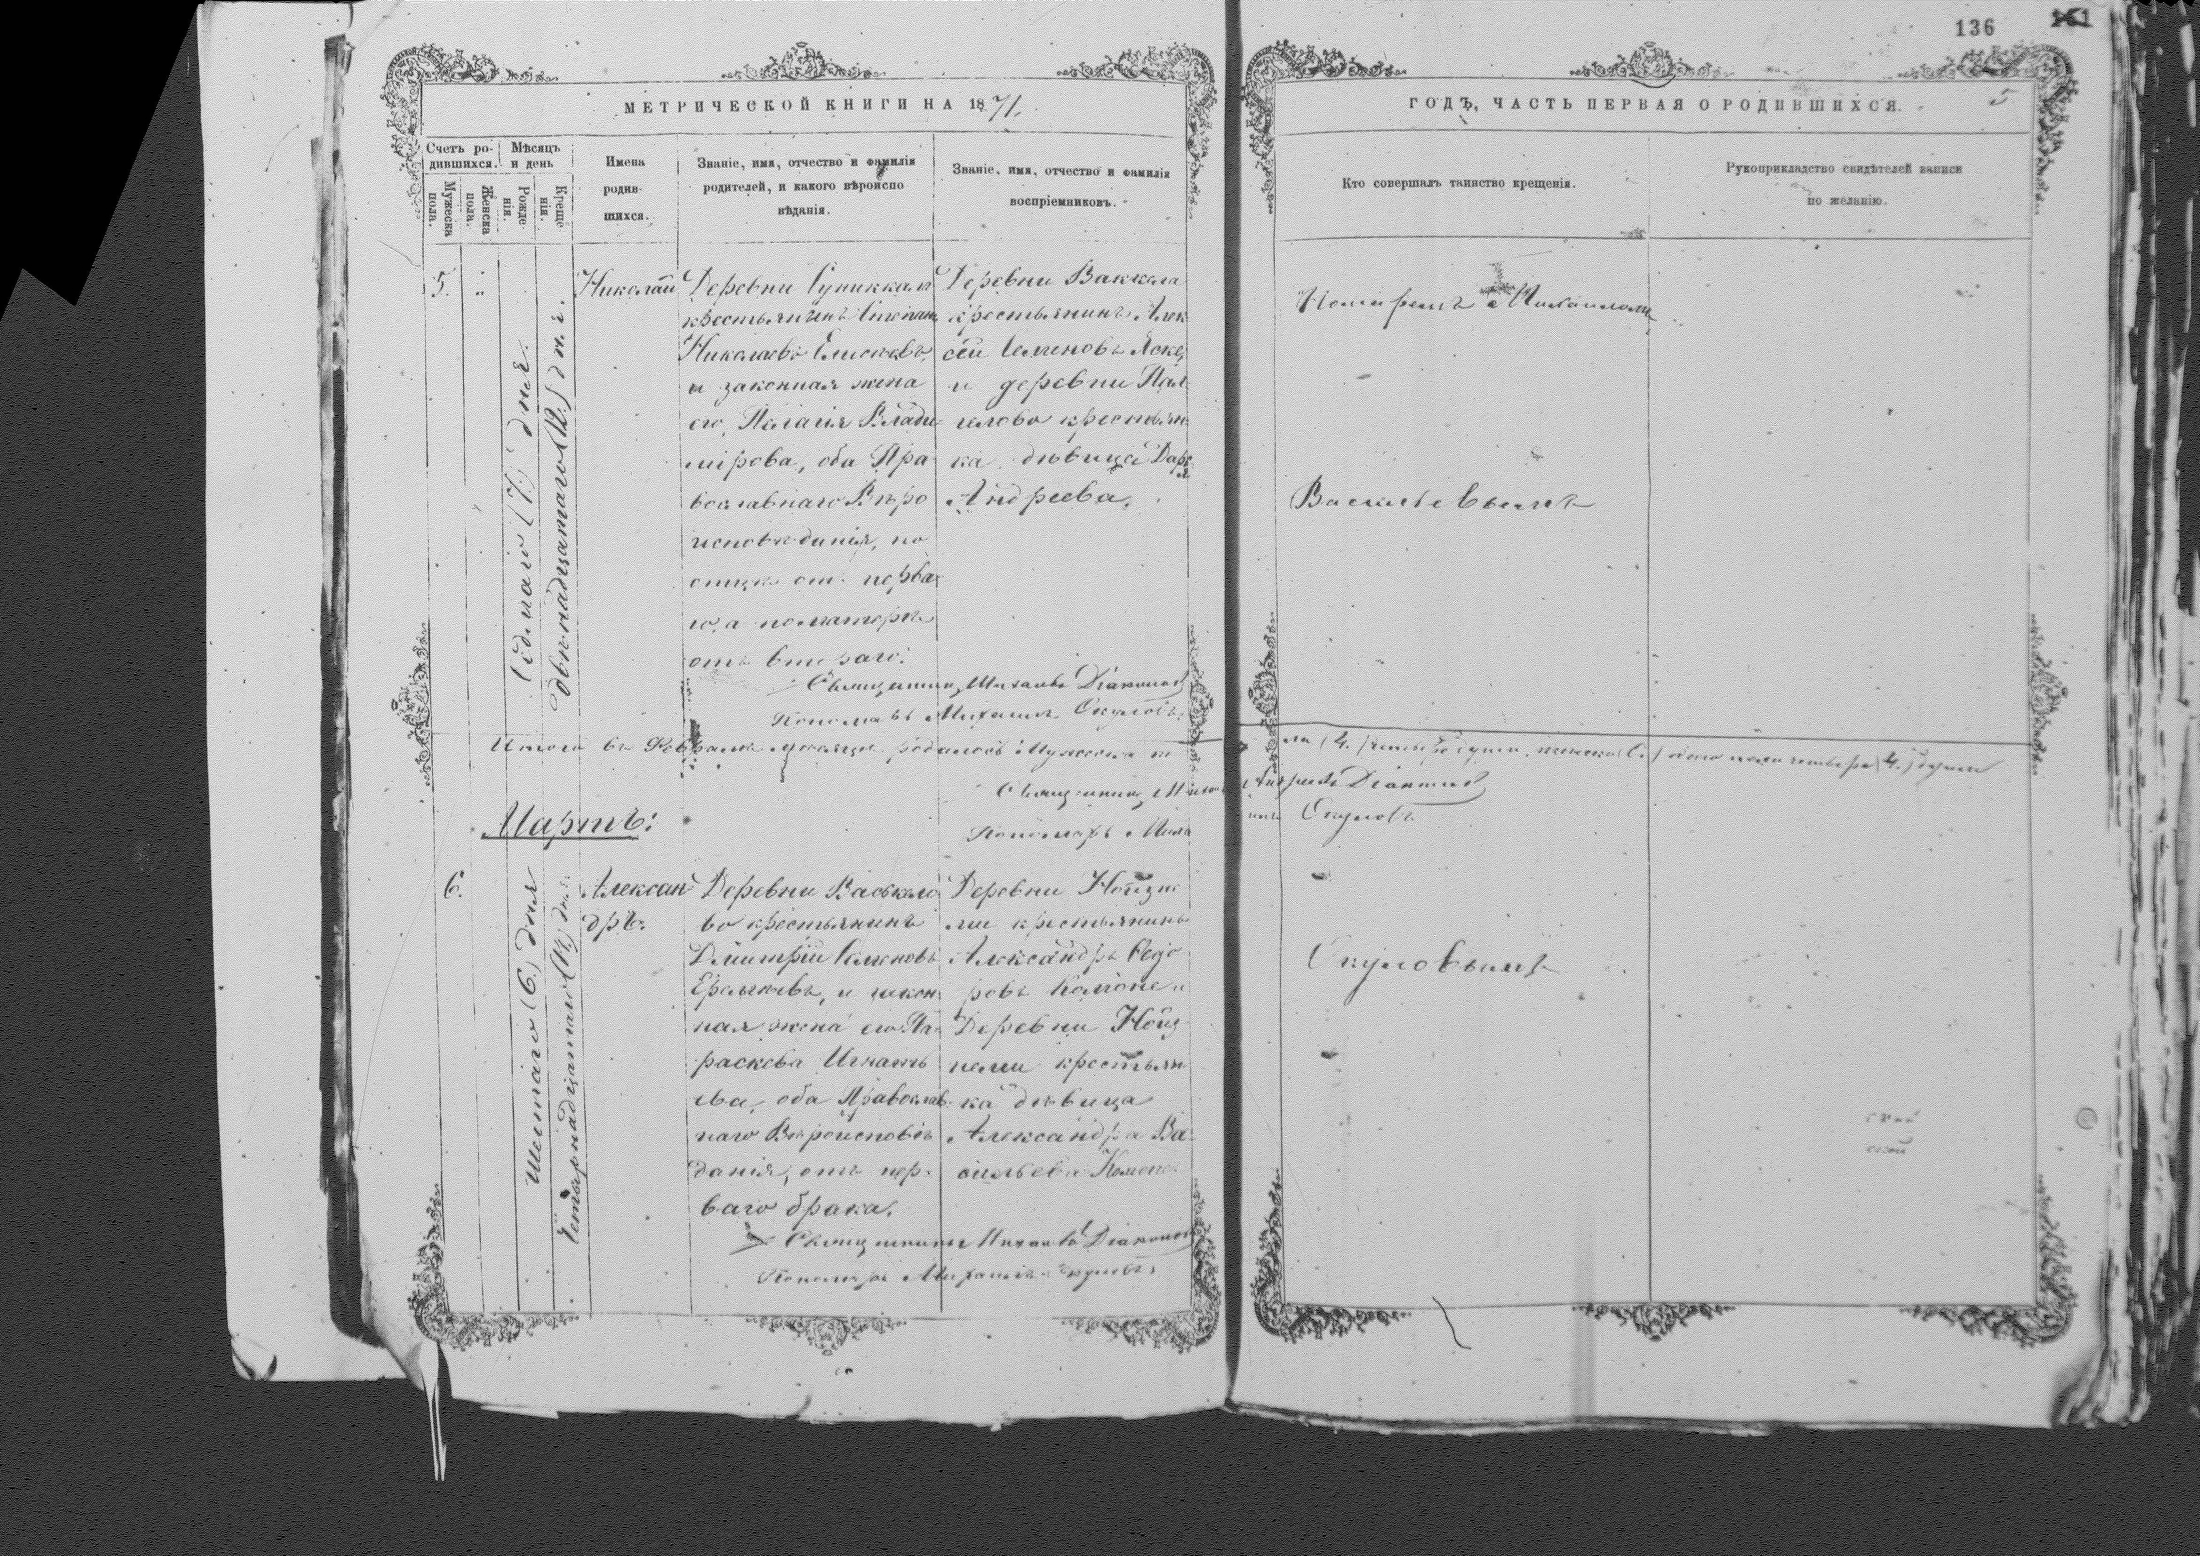 136
МЕТРИЧЕСКОЙ КНИГИ НА 1871.
ГОДЪ, ЧАСТЬ ПЕРВАЯ О РОДИВШИХСЯ.
5
Счетъ ро-
дившихся.
Мужеска
пола.
Женска
пола.
Мѣсяцъ
и день
Рожде
нія.
Креще
нія.
Имена
родив-
шихся.
Званіе, имя, отчество и фамилія
родителей, и какого вѣроиспо
вѣданія.
Званіе, имя, отчество и фамилія
воспріемниковъ.
Кто совершалъ таинство крещенія.
Рукоприкладство свидѣтелей записи
по желанію.
5.
Седмаго (7.) дня.
двенадцатаго (12.) дня.
Николай
Деревни
крестьянинъ Степанъ
Николаевъ Елисѣевъ,
и законная жена
его, Пелагія Влади
мірова, оба Пра
вославнаго Вѣро
исповѣданія, по
отцѣ отъ перва
го, а по матери
отъ втораго.
Деревни Ваккела
крестьянинъ Алек
сѣй Семеновъ
и деревни
крестьян
ка дѣвица Дарья
Андреева.
Васильевымъ
Священникъ Діаконовъ
Пономарь Михаилъ Окуловъ.
Итого въ Февралѣ мѣсяцѣ родилось: Мужеска по
ла (4.) четыре души, женска
Священникъ
Діаконовъ
Пономарь Миха
илъ Окуловъ
Мартъ:
6.
Шестаго (6.) дня
Четырнадцатаго (14.) дня.
Алексан
дръ.
Деревни Васькело
во крестьянинъ
Дмитрій Семеновъ
и закон
ная жена его Па
раскева Игнать
ева, оба Православ
наго Вѣроисповѣ
данія, отъ пер
ваго брака.
Деревни
крестьянинъ
Александръ Федо
ровъ
Деревни
крестьян
ка дѣвица
Александра Ва
сильева
Окуловымъ
Священникъ Діаконовъ
Пономарь Михаилъ Окуловъ